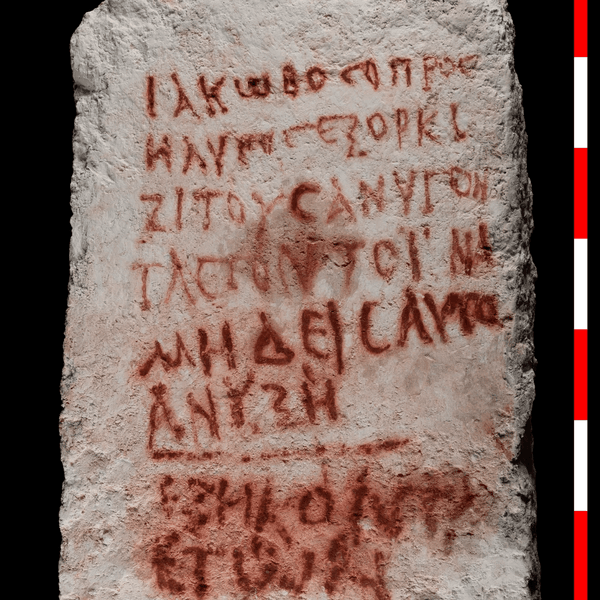 ΙΑΚωΒΟϹ Ο ΠΡΟϹ
ΗΛΥΤΟϹ ΕΞΟΡΚΙ
ΖΙ ΤΟΥϹ ΑΝΥΓΟΝ
ΤΑϹ ΤΟΥΤΟ ΙΝΑ
ΜΗΔΕΙϹ ΑΥΤΟ
ΑΝΥΞΗ
ΕΤωΝ